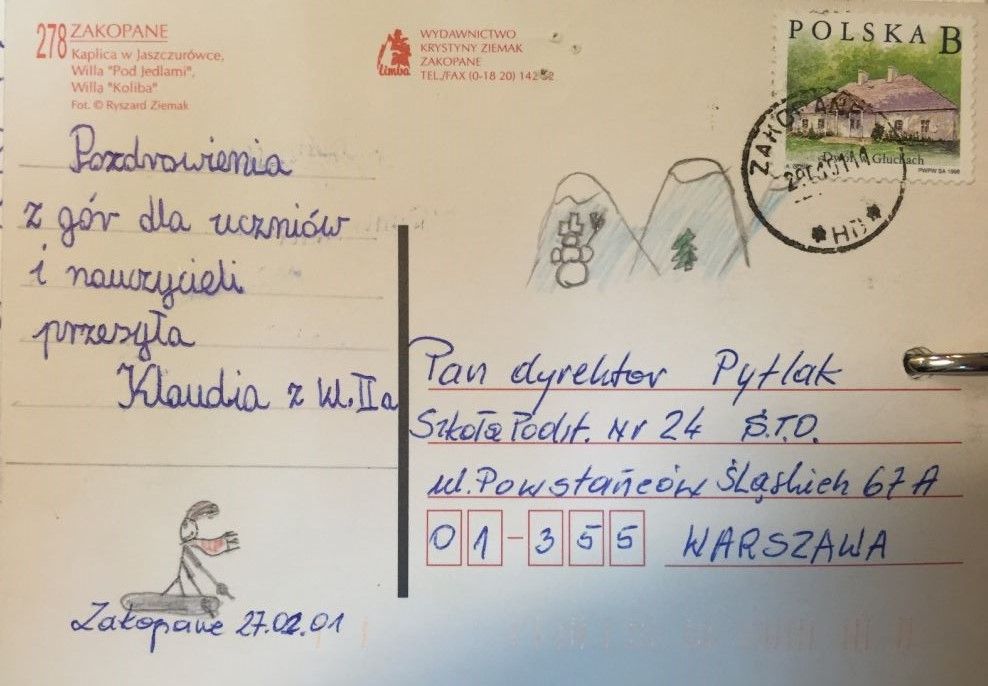 278 ZAKOPANE
Kaplica w Jaszczurówce,
Willa "Pod Jedlami",
Willa "Koliba"
Fot. © Ryszard Ziemak
Limba
WYDAWNICTWO
KRYSTYNY ZIEMAK
ZAKOPANE
TEL./FAX (0-18 20) 142
POLSKA B
Dwór w Głuchach
PWPW SA 1998
ZAKOPANE
HB
Pozdrowienia
z gór dla uczniów
i nauczycieli
przesyła
Klaudia z kl. IIa
Zakopane 27.02.01
Pan dyrektor Pytlak
Szkoła Podst. Nr 24 S.T.O.
ul. Powstańców Śląskich 67A
01-355 WARSZAWA